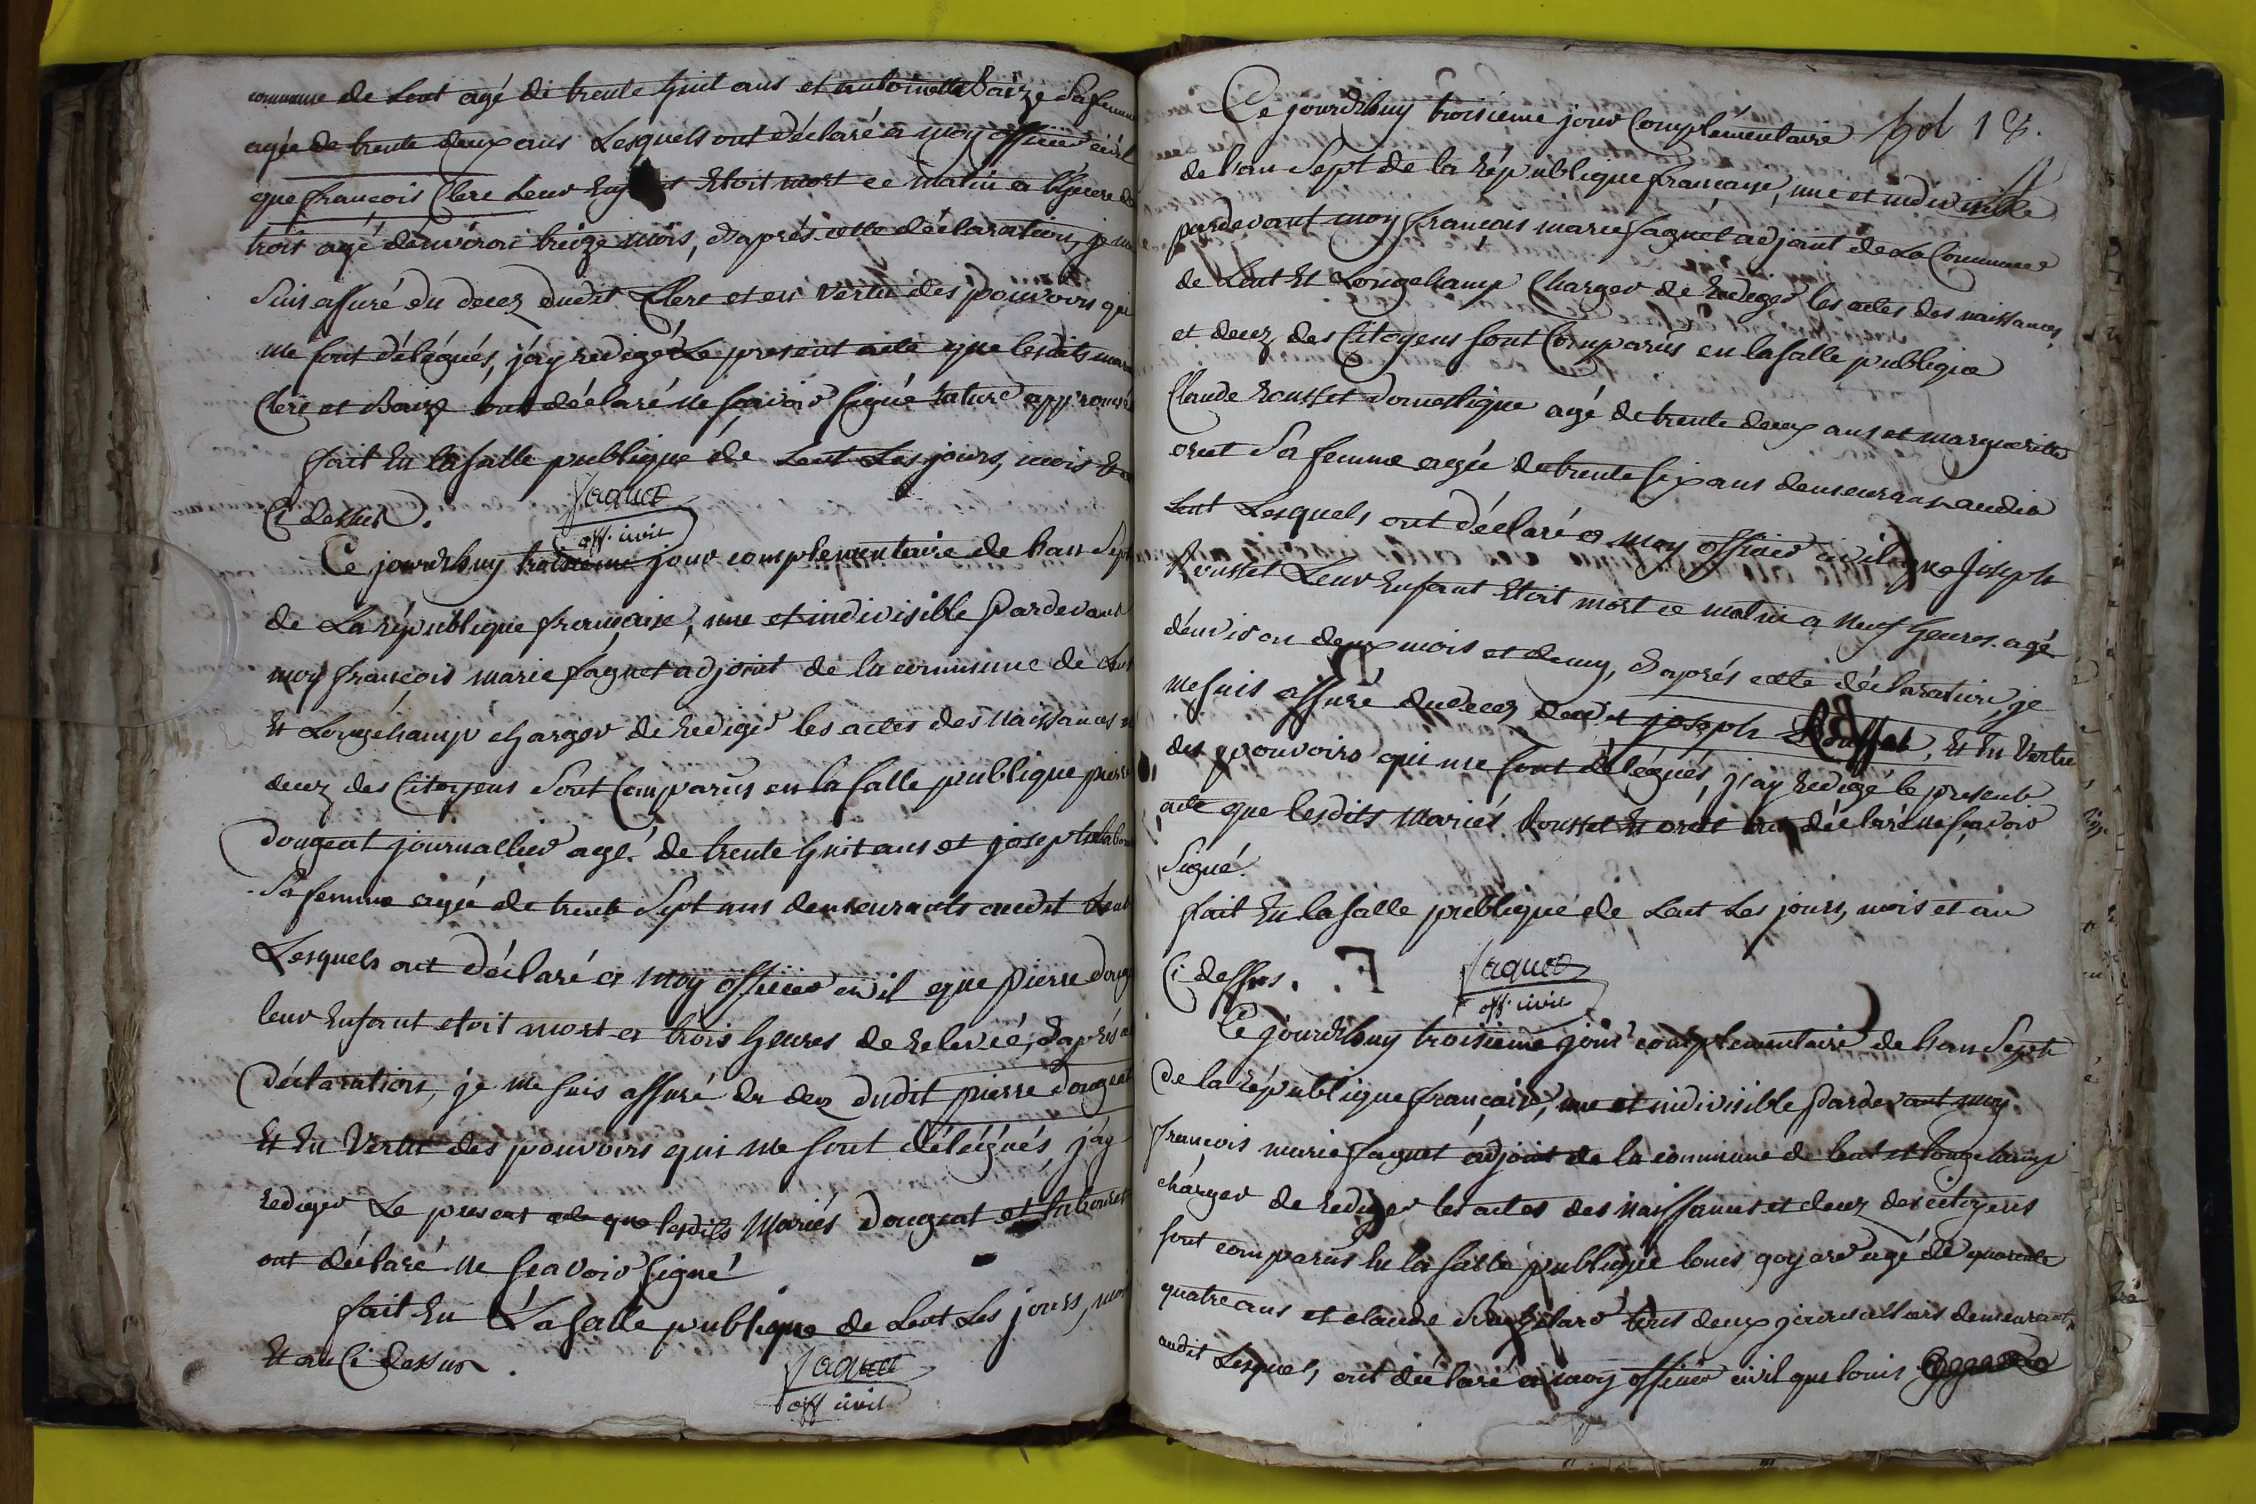 commune de Lent agé de trente huit ans et antoinette Bairz Sa femme
agée de trente deux ans Lesquels ont déclaré a moy officier civil
que francois Clere Leur Enfant Etoit mort ce matin a l'heure de
trois agé d'environ treize mois, d'aprés cette déclaration, je me
Suis assuré du decez dudit Clere et en vertu des pouvoirs qui
me sont délégués, j'ay redigé Le present acte que lesdits mariés
Clere et Bairz ont déclaré ne sçavoir signé rature approuvée
fait En la salle publique de Lent Les jours, mois Et an
Ci dessus.
faguet
off. civil
Ce jourd'huy troisieme jour complementaire de l'an Sept
de La république française, une et indivisible Pardevant
moy françois marie faguet adjoint de la commune de Lent
Et Longchamp charger de rediger les actes des naissances et
decez des Citoyens Sont Comparus en la salle publique pierre
dougeat journallier agé de trente huit ans et josephte
Sa femme agée de trente Sept ans demeurants audit Lent
Lesquels ont déclaré a moy officier civil que pierre doug
leur Enfant etoit mort a trois heures de relevée, d'aprés
déclaration, je me suis assuré du decez dudit pierre dougeat
Et En Vertu des pouvoirs qui me sont délégués, j'ay
rediger Le present acte que lesdits Mariés dougeat et
ont déclaré ne sçavoir signé
fait En La salle publique de Lent Les jours, mois
Et an Ci dessus.
faguet
off civil
Ce jourd'huy troisieme jour Complémentaire fol 18.
de l'an Sept de la République française, une et indivisible
pardevant moy francois marie faguet adjoint de La Commune
de Lent Et Longchamp Charger de Rediger les actes des naissances
et decez des Citoyens sont Comparus en la salle publique
Claude rousset domestique agé de trente deux ans et marguerite
oret Sa femme agée de trente six ans demeurans audit
Lent Lesquels ont déclaré a moy officier civil que Joseph
Rousset Leur Enfant Etoit mort ce matin a neuf heures agé
d'environ deux mois et demy, d'aprés cette déclaration, je
me suis assuré du decez dudit joseph Rousset, Et En Vertu
des pouvoirs qui me sont délégués, j'ay redigé le present
acte que lesdits Mariés Rousset Et oret ont déclaré ne sçavoir
Signé.
fait En la salle publique de Lent Les jours, mois et an
Ci dessus.
faguet
off. civil
Ce jourd'huy troisieme jour complementaire de l'an Sept
de la république française, une et indivisible Pardevant moy
françois marie faguet adjoint de la commune de lent et longchamp
charger de rediger les actes des naissances et decez des citoyens
sont comparus En la salle publique louis goyard agé de quarente
quatre ans et claude tous deux journalliers demeurants
audit Lesquels ont déclaré a moy officier civil que louis